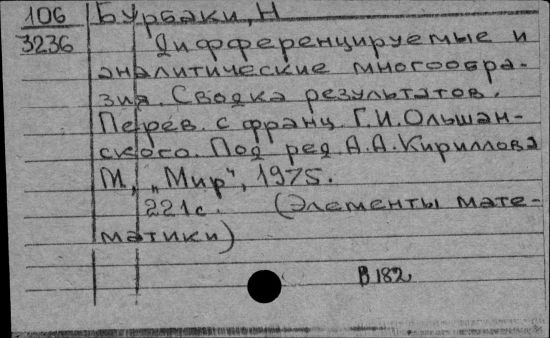 106
3236
Бурбаки, Н
Дифференцируемые и
аналитические многообра-
зия. Сводка результатов.
Перев. с франц. Г.И.Ольшан-
ского. Под ред. А.А.Кириллова
М., „Мир", 1975.
221с. (Элементы мате-
матики)
В 182